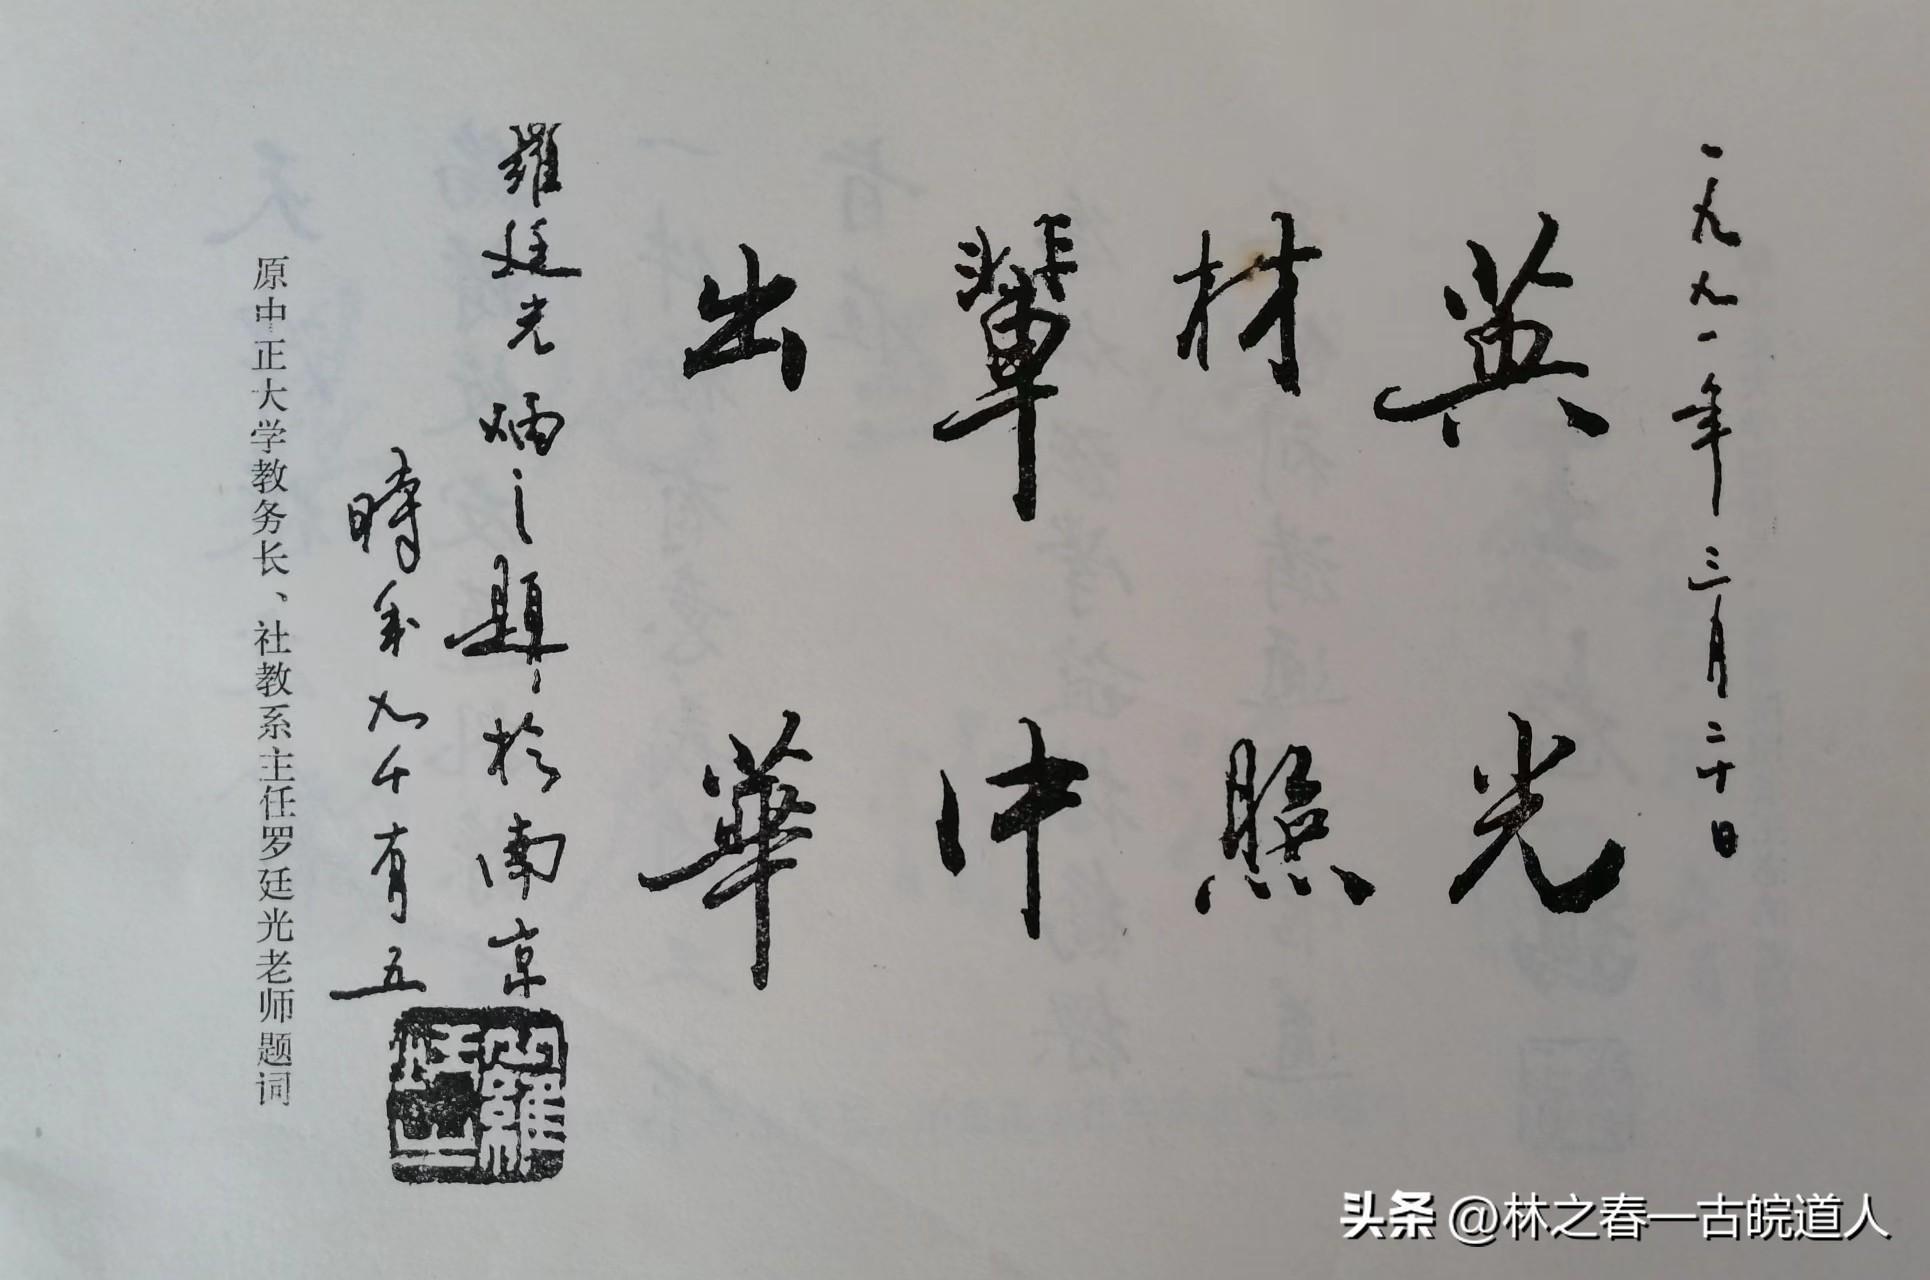 一九九一年三月二十日
英材輩出
光照中華
羅廷光炳之題於南京
時年九十有五
原中正大学教务长、社教系主任罗廷光老师题词
头条 @林之春—古皖道人